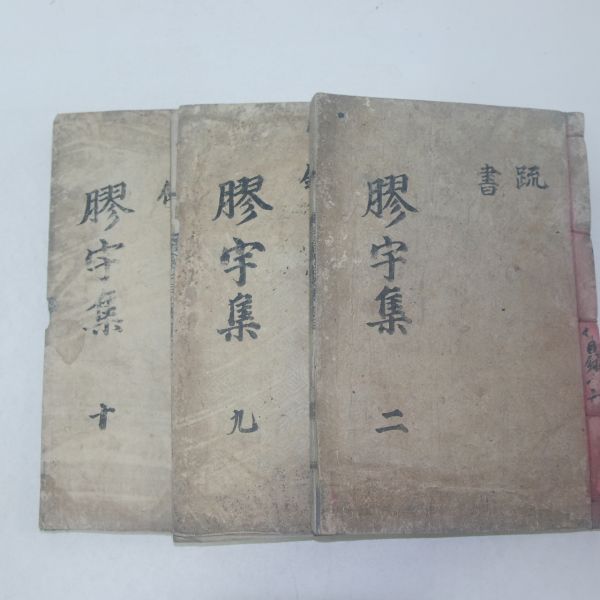 疏
書
膠宇集 二
膠宇集 九
膠宇集 十